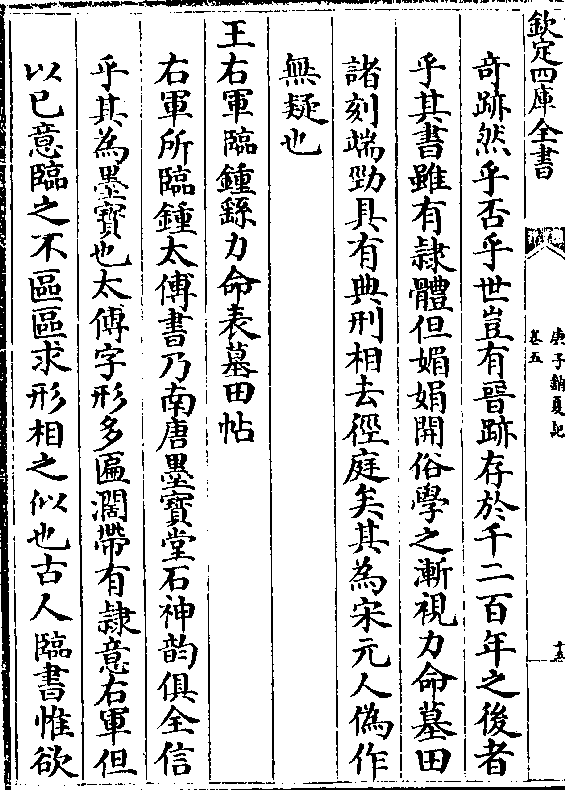 欽定四庫全書
庚子銷夏記
卷五
十五
奇跡然乎否乎世豈有晉跡存於千二百年之後者
乎其書雖有隷體但媚娟開俗學之漸視力命墓田
諸刻端勁具有典刑相去徑庭矣其為宋元人偽作
無疑也
王右軍臨鍾繇力命表墓田帖
右軍所臨鍾太傅書乃南唐墨寳堂石神韵俱全信
乎其為墨寳也太傅字形多匾濶帶有隷意右軍但
以已意臨之不區區求形相之似也古人臨書惟欲